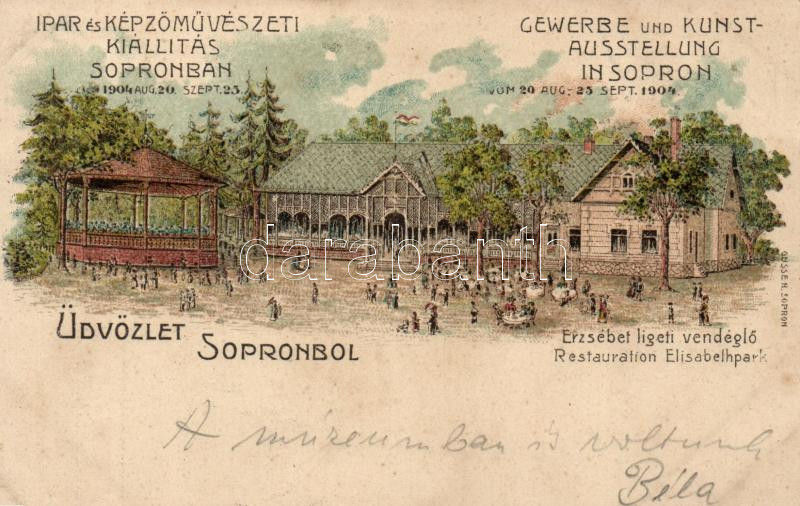 IPAR és KÉPZŐMŰVÉSZETI
KIÁLLITÁS
SOPRONBAN
1904 AUG. 20. SZEPT. 25.
GEWERBE UND KUNST-
AUSSTELLUNG
IN SOPRON
VOM 20 AUG.- 25 SEPT. 1904.
darabanth.com
ÜDVÖZLET
SOPRONBOL
Erzsébet ligeti vendéglő
Restauration Elisabethpark
SOPRON
A múzeumban is voltunk
Béla